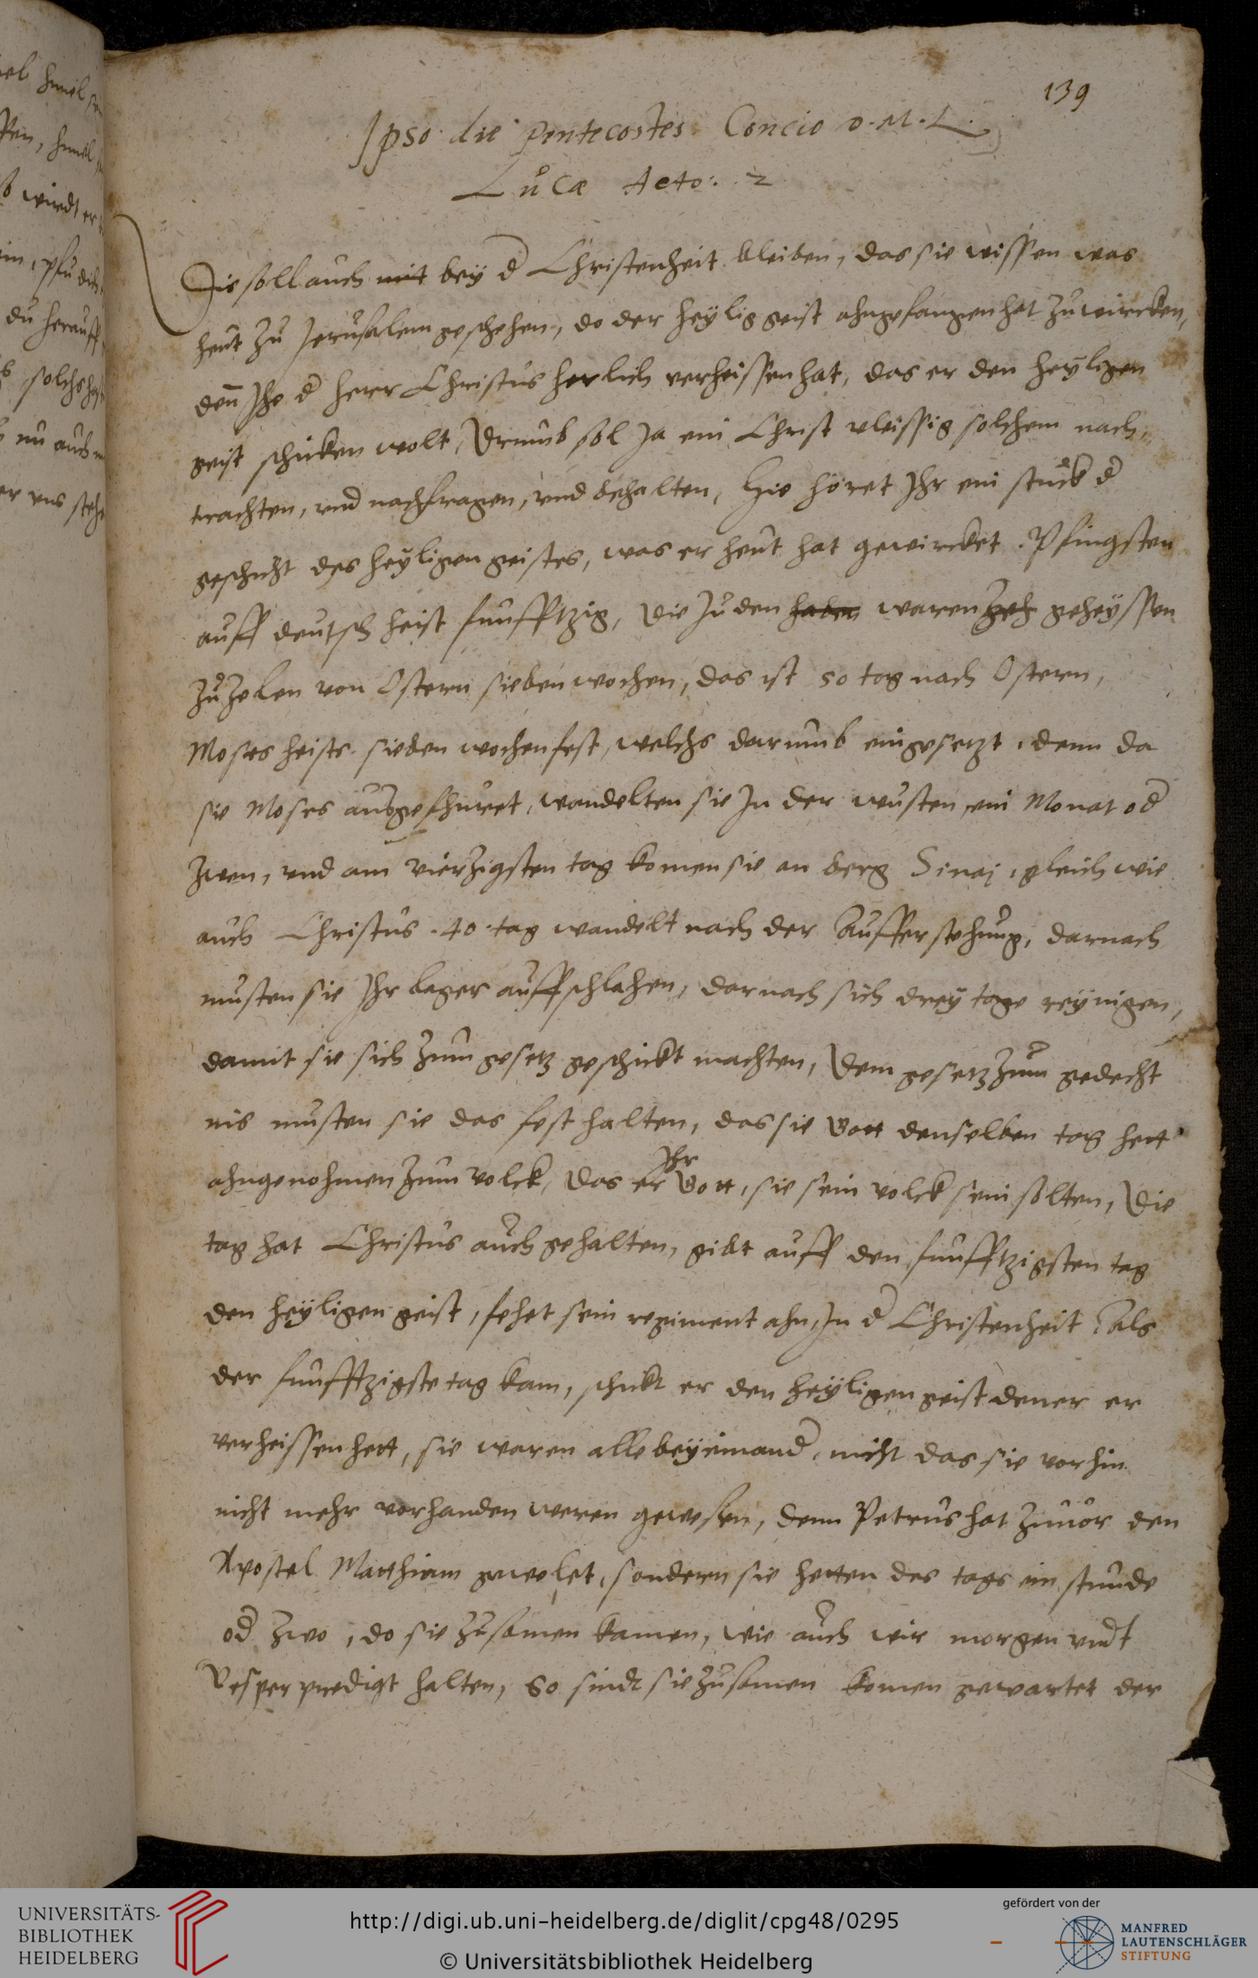 139
Ipso die pentecostes Concio D. M. L.
Lucæ Acto: 2
Die soll auch mit bey d Christenheit bleiben, das sie wissen was
heut zu Jerusalem geschehen, do der heylig geist ahngefangen hat zu wircken,
den Ihe d herr Christus herlich verheissen hat, das er den heyligen
geist schicken wolt, Drumb sol Ja ein Christ vleissig solchem nach
trachten, vnd nachfragen, vnd behalten, Hie höret Ihr ein stuck d
geschicht des heyligen geistes, was er heut hat gewircket. Pfingsten
auff deutsch heist funfftzig, die Juden haben waren geheyssen
zu zelen von Ostern sieben wochen, das ist 50 tag nach Ostern,
Moses heists sieben wochenfest, welchs darumb eingesetzt, denn da
sie Moses ausgefhuret, wandelten sie In der wusten ein Monat od
zwen, vnd am vierzigsten tag komen sie an berg Sinaj, gleich wie
auch Christus 40 tag wandelt nach der Aufferstehung, darnach
musten sie Ihr lager auffschlahen, darnach sich drey tage reynigen,
damit sie sich zum gesetz geschickt machten, Dem gesetz zum gedecht
nis musten sie das fest halten, das sie Gott denselben tag hett
ahngenohmen zum volck, das er Ihr Gott, sie sein volck sein solten, Die
tag hat Christus auch gehalten, gibt auff den funfftzigsten tag
den heyligen geist, fehet sein regiment ahn, In d Christenheit. Als
der funfftzigste tag kam, schickt er den heyligen geist dener er
verheissen hett, sie waren alle beyeinand, nicht das sie vorhin
nicht mehr vorhanden weren gewesen, denn Petrus hat zuuor den
Apostel Matthiam gewelet, sondern sie hetten des tags ein stunde
od zwo, do sie zusamen kamen, wie auch wir morgen vndt
Vesper predigt halten, So sindt sie zusamen komen gewartet der
UNIVERSITÄTS-
BIBLIOTHEK
HEIDELBERG
http://digi.ub.uni-heidelberg.de/diglit/cpg48/0295
© Universitätsbibliothek Heidelberg
gefördert von der
MANFRED
LAUTENSCHLÄGER
STIFTUNG